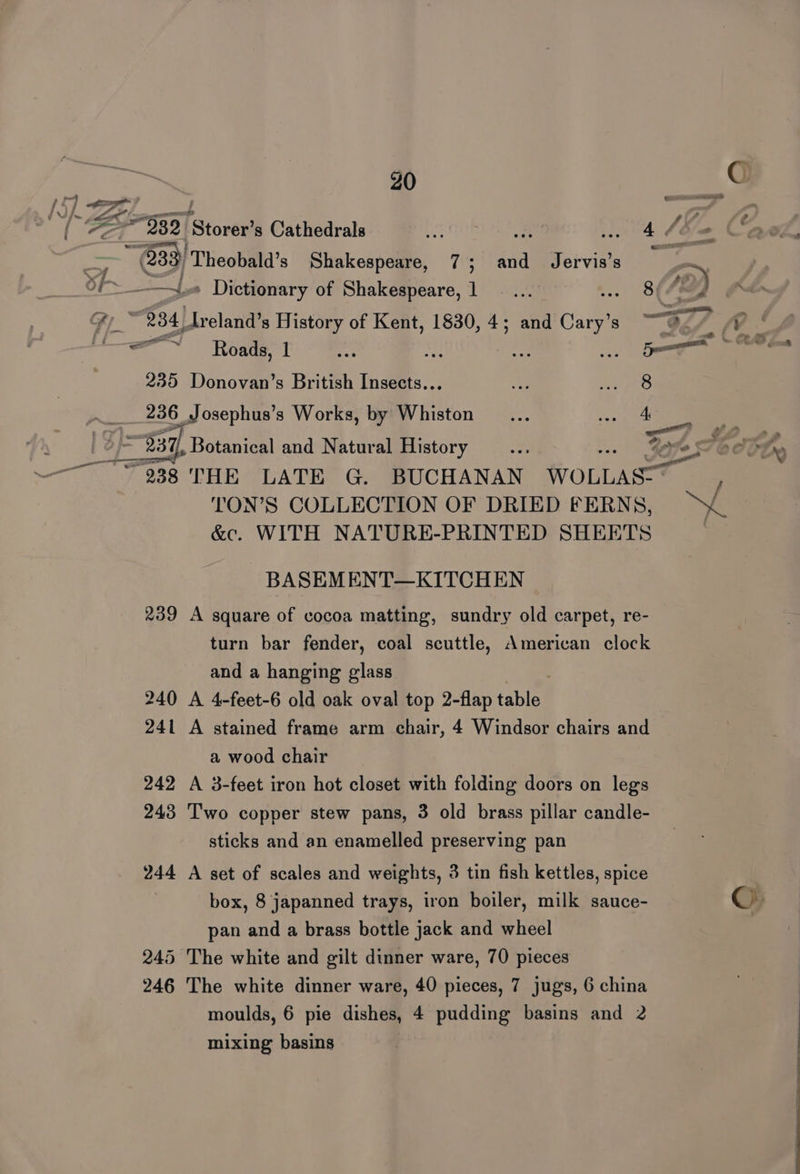 20
232 Storer's Cathedrals ... ... ... 4
233 Theobald's Shakespeare, 7; and Jervis's
Dictionary of Shakespeare, 1 ... ... 8
234 Ireland's History of Kent, 1830, 4; and Cary's
Roads, 1 ... ... ... ... 5
235 Donovan's British Insects... ... ... 8
236 Josephus's Works, by Whiston ... ... 4
237 Botanical and Natural History ... ...
238 THE LATE G. BUCHANAN WOLLAS-
TON'S COLLECTION OF DRIED FERNS,
&c. WITH NATURE-PRINTED SHEETS
BASEMENT—KITCHEN
239 A square of cocoa matting, sundry old carpet, re-
turn bar fender, coal scuttle, American clock
and a hanging glass
240 A 4-feet-6 old oak oval top 2-flap table
241 A stained frame arm chair, 4 Windsor chairs and
a wood chair
242 A 3-feet iron hot closet with folding doors on legs
243 Two copper stew pans, 3 old brass pillar candle-
sticks and an enamelled preserving pan
244 A set of scales and weights, 3 tin fish kettles, spice
box, 8 japanned trays, iron boiler, milk sauce-
pan and a brass bottle jack and wheel
245 The white and gilt dinner ware, 70 pieces
246 The white dinner ware, 40 pieces, 7 jugs, 6 china
moulds, 6 pie dishes, 4 pudding basins and 2
mixing basins